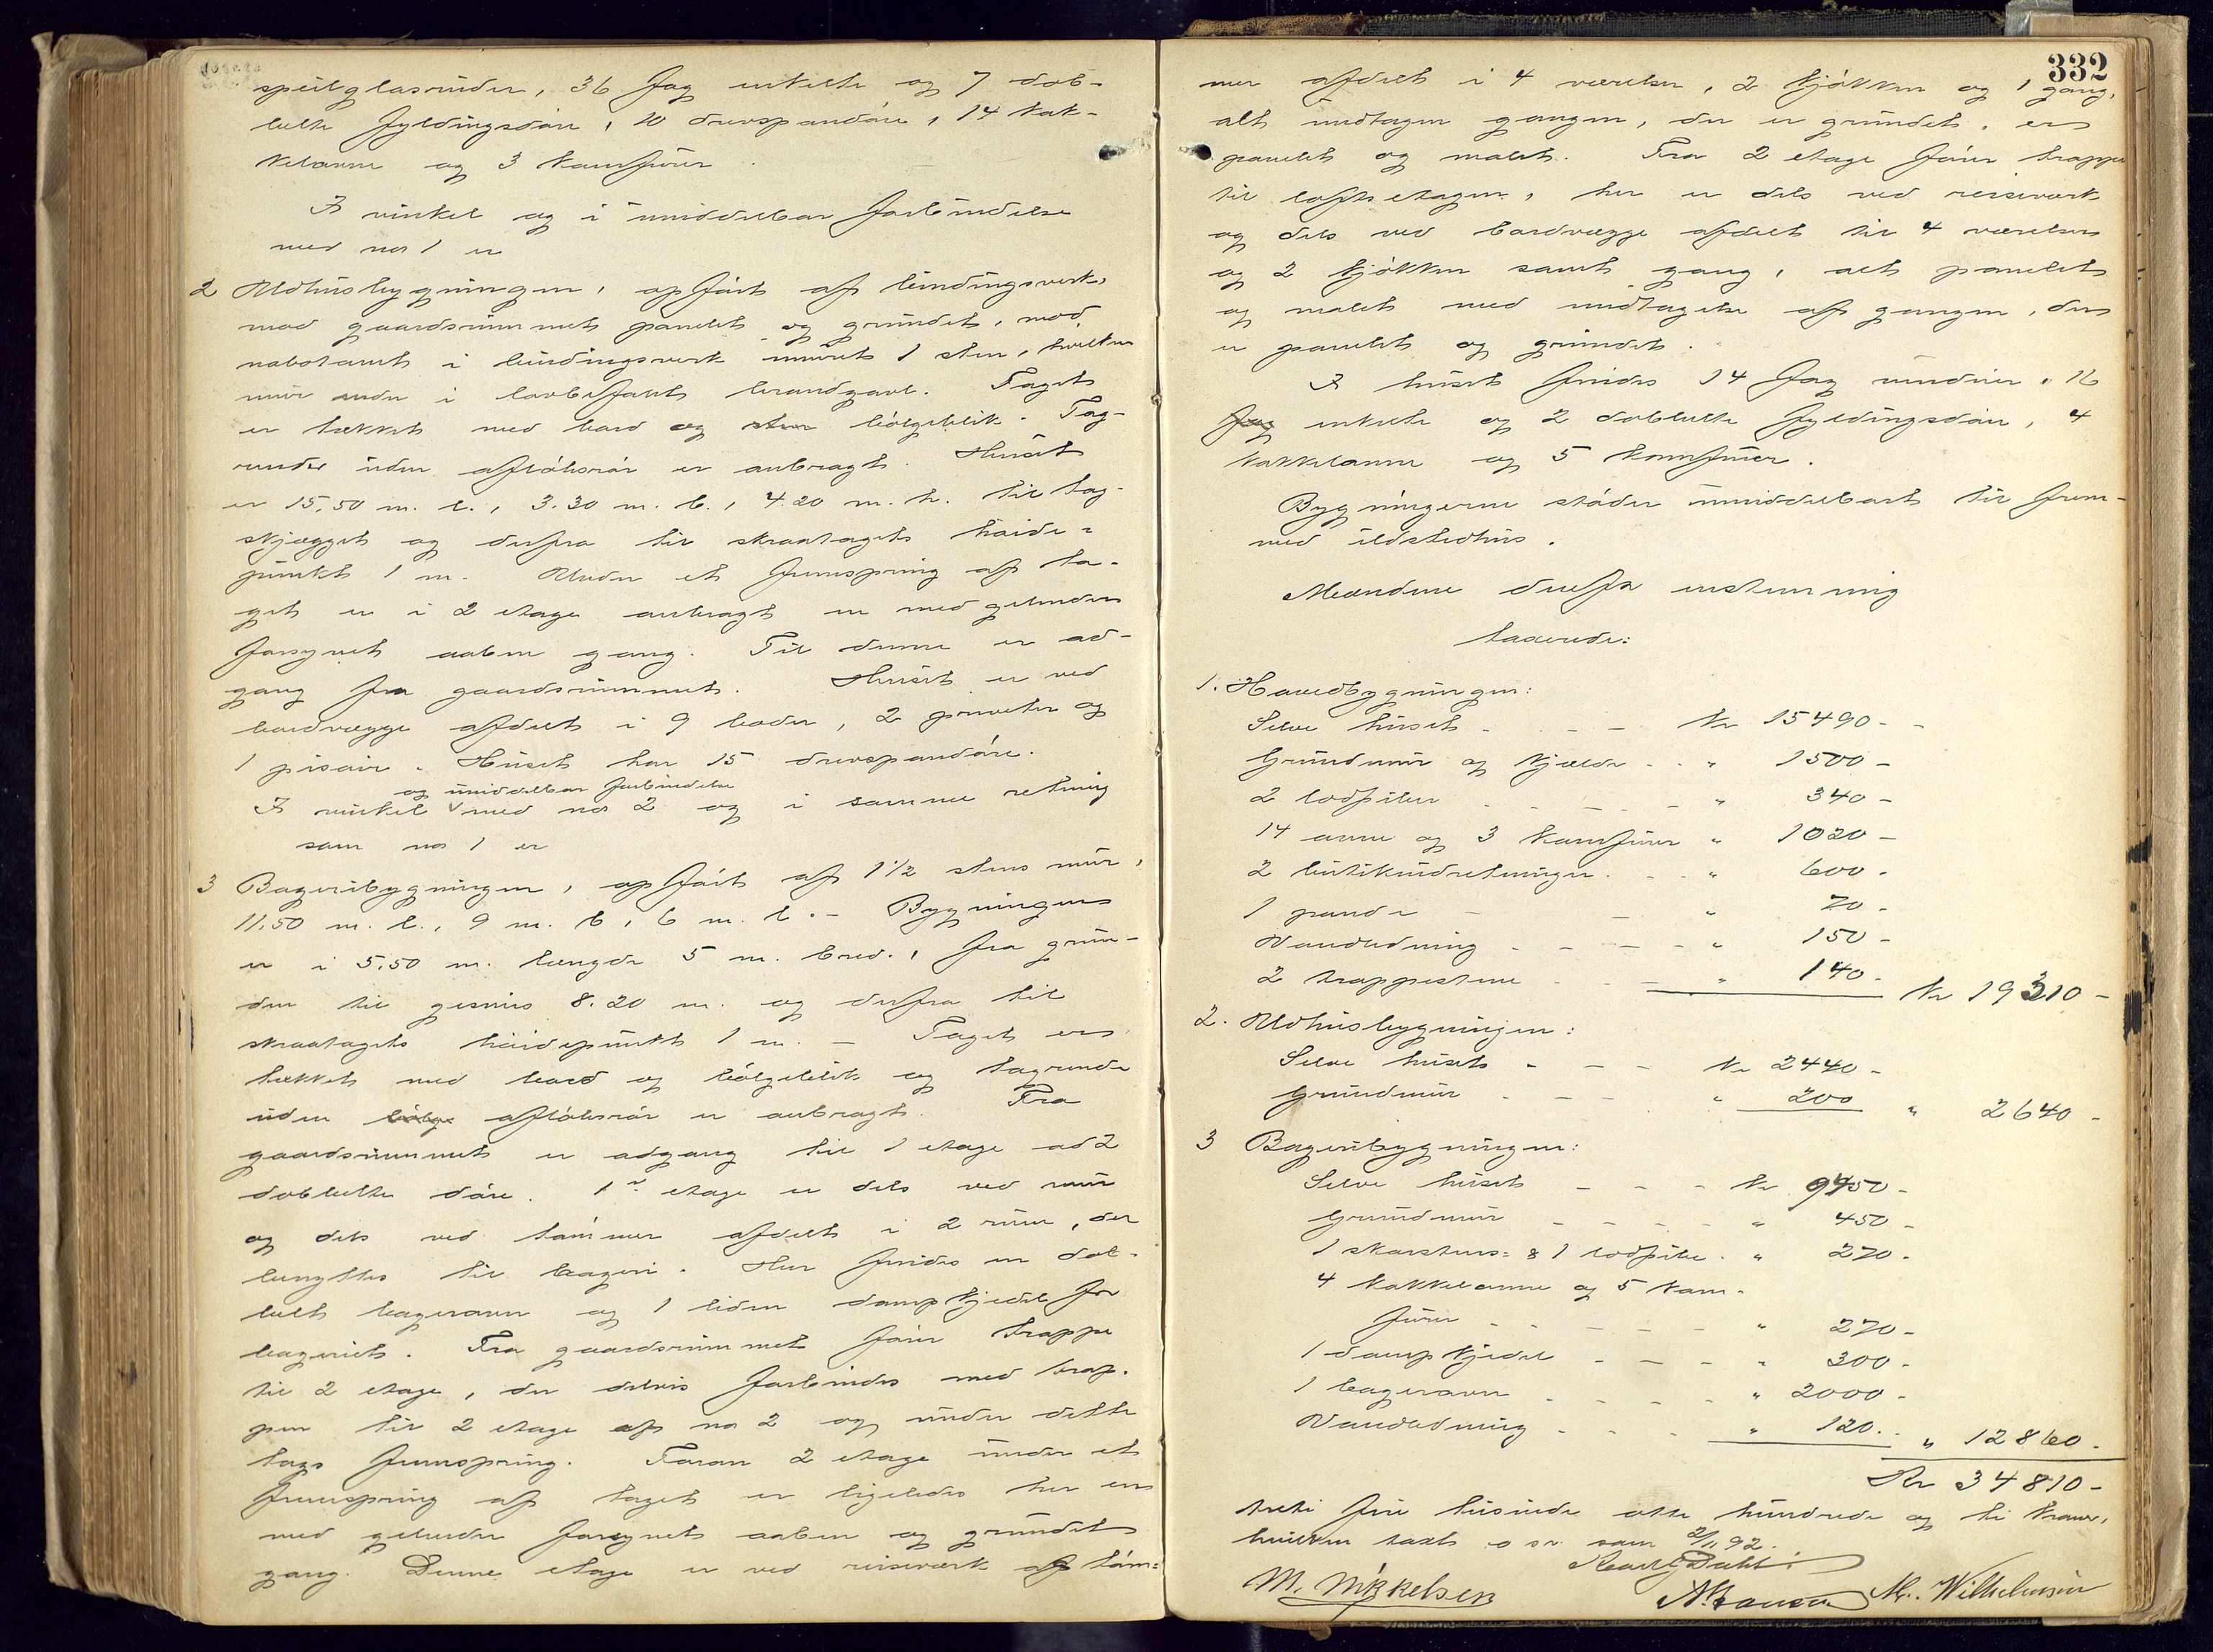 speilglasruder, 36 fag enkelte og 7 dob-
belte fyldingsdøre, 10 drevspandøre, 14 kak-
kelovne og 3 komfurer.
I vinkel og i umiddelbar forbindelse
med no 1 er
2 Udhusbygningen, opført af bindingsverk,
mod gaardsrummet panelet og grundet, mod
nabotomt i bindingsverk muret 1 sten, hvilken
mur ender i lovbefalet brandgavl. Taget
er tækket med bord og bølgeblik. Tag-
render uden afløbsrør er anbragt. Huset
er 15,50 m. l., 3.30 m. b., 4.20 m. h. til tag-
skjægget og derfra til skraatagets høide-
punkt 1 m. Under et fremspring af ta-
get er i 2 etage anbragt en med gelender
forsynet aaben gang. Til denne er ad-
gang fra gaardsrummet. Huset er ved
bordvægge afdelt i 9 boder, 2 priveter og
1 pisoir. Huset har 15 drevspandøre.
og umiddelbar forbindelse
I vinkel med no 2 og i samme retning
som no 1 er
3 Bageribygningen, opført af 1 1/2 stens mur,
11,50 m. l., 9 m. b, 6 m. h. - Bygningen
er i 5,50 m. længde 5 m. bred., fra grun-
den til gesims 8.20 m. og derfra til
skraatagets høidepunkt 1 m. - Taget er
tækket med bord og bølgeblik og tagrende
uden bølge afløbsrør er anbragt. Fra
gaardsrummet er adgang til 1 etage ad 2
dobbelte døre. 1ste etage er dels ved mur
og dels ved tømmer afdelt i 2 rum, der
benyttes til bageri. Her findes en dob-
belt bagerovn og 1 liden dampkjedel for
bageriet. Fra gaardsrummet fører trappe
til 2 etage, der delvis forbindes med trap-
pen til 2 etage af no 2 og under dette
tags fremspring. Foran 2 etage under et
fremspring af taget er ligeledes her en
med gelender forsynet aaben og grundet
gang. Denne etage er ved reisværk af tøm-
332
mer afdelt i 4 værelser, 2 kjøkken og 1 gang,
alt undtagen gangen, der er grundet, er
panelet og malet. Fra 2 etage fører trappe
til loftsetagen, her er dels ved reisværk
og dels ved bordvægge afdelt til 4 værelser
og 2 kjøkken samt gang, alt panelet
og malet med undtagelse af gangen, der
er panelet og grundet.
I huset findes 14 fag vinduer, 16
fag enkelte og 2 dobbelte fyldingsdøre, 4
kakkelovne og 5 komfurer.
Bygningerne støder umiddelbart til frem-
med ildstedhus.
Mændene derfor enstemmig
taxerede:
1. Hovedbygningen:
Selve huset - - - Kr 15490 -
Grundmur og kjælder - - " 1500 -
2 lodpiber - - - - " 340 -
14 ovne og 3 komfurer " 1020 -
2 butikindretninger - - " 600 -
1 pande - - " 70 -
Vandledning - - - - " 150 -
2 trappestene - - - " 140 - Kr 19310 -
2. Udhusbygningen:
Selve huset - - - Kr 2440 -
Grundmur - - - " 200 " 2640 -
3 Bageribygningen:
Selve huset - - - Kr 9450 -
Grundmur - - - - " 450 -
1 skorstens- & 1 lodpibe - " 270 -
4 kakkelovne og 5 kom-
furer - - - - - " 270 -
1 dampkjedel - - - - " 300 -
1 bagerovn - - - - " 2000 -
Vandledning - - - - " 120 - " 12860 -
Kr 34810 -
treti fire tusinde otte hundrede og ti kroner,
hvilken taxt o s v som 2/1, 92.
M. Mikkelsen
A. Hansen M. Wilhelmsen